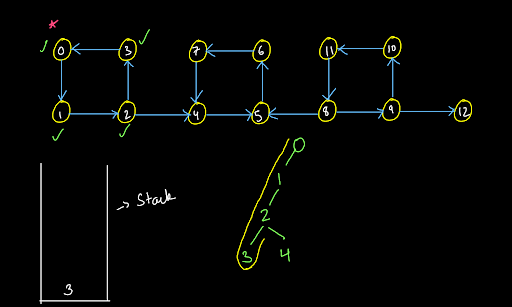 0 3 7 6 11 10
1 2 4 5 8 9 12
-> Stack
0
1
2
3 4
3